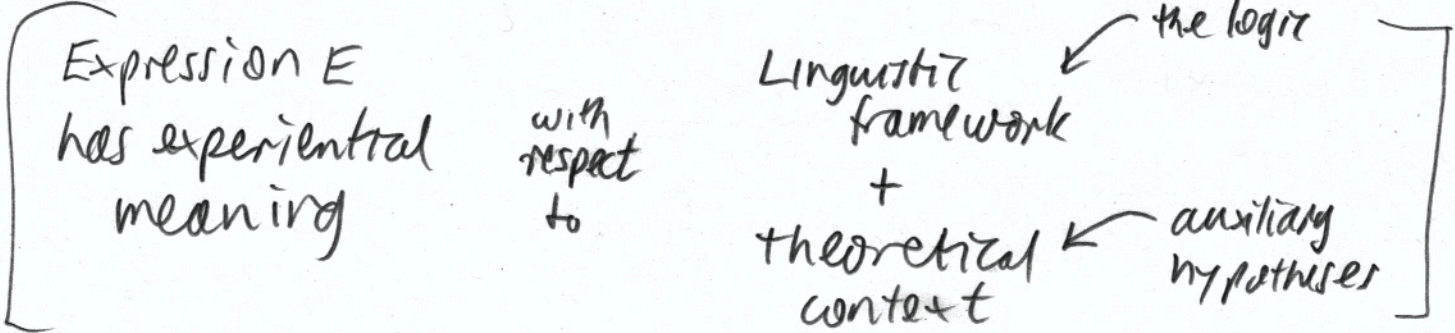 Expression E
has experiential
meaning
with
respect
to
Linguistic
framework
+
theoretical
context
the logic
auxiliary
hypotheses